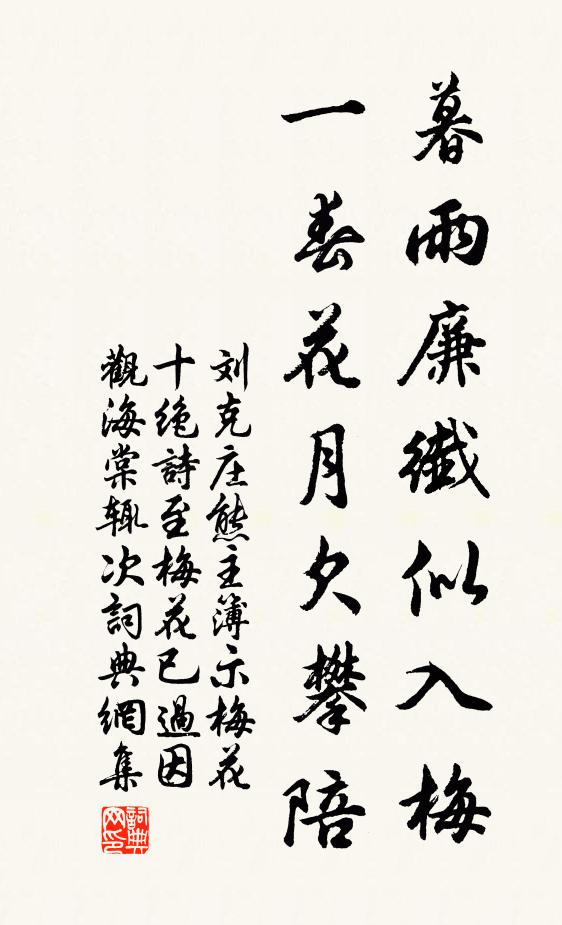 暮雨廉纖似入梅
一春花月欠攀陪
刘克庄熊主簿示梅花
十绝詩至梅花已過因
觀海棠辄次詞典網集
詞典网印